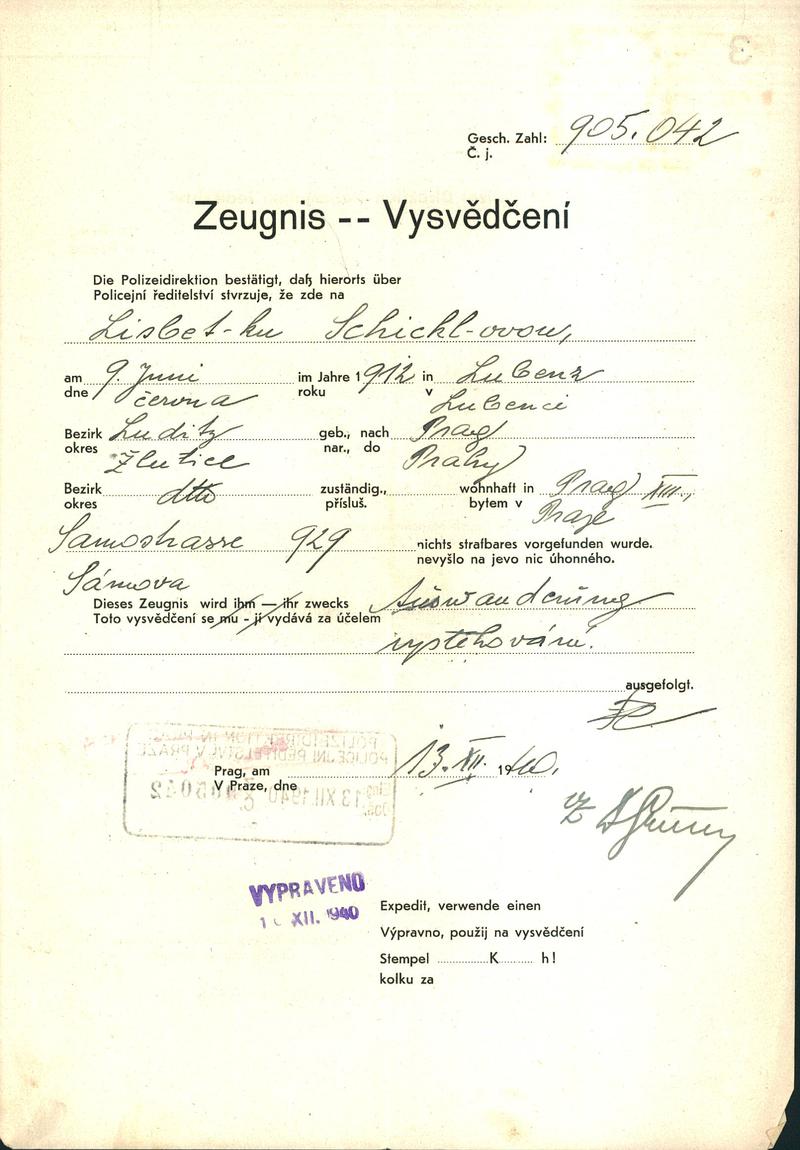 Gesch. Zahl: 905.042
Č. j.
Zeugnis -- Vysvědčení
Die Polizeidirektion bestätigt, daß hierorts über
Policejní ředitelství stvrzuje, že zde na
Lisbet-ku Schickl-ovou,
am 9. Juni im Jahre 1912 in Lubenz
dne června roku v Lubenci
Bezirk Luditz geb., nach Prag
okres Žlutice nar., do Prahy
Bezirk dtto zuständig., wohnhaft in Prag XIII.,
okres přísluš. bytem v Praze
Samostrasse 929 nichts strafbares vorgefunden wurde.
nevyšlo na jevo nic úhonného.
Sámova
Dieses Zeugnis wird ihm — ihr zwecks Auswanderung
Toto vysvědčení se mu - jí vydává za účelem
vystěhování.
ausgefolgt.
POLIZEIDIREKTION IN PRAG
POLICEJNÍ ŘEDITELSTVÍ V PRAZE
13 XII. 1940 č. 905042
Prag, am 13. XII. 1940.
V Praze, dne
VYPRAVENO
XII. 1940
Expedit, verwende einen
Výpravno, použij na vysvědčení
Stempel K h!
kolku za